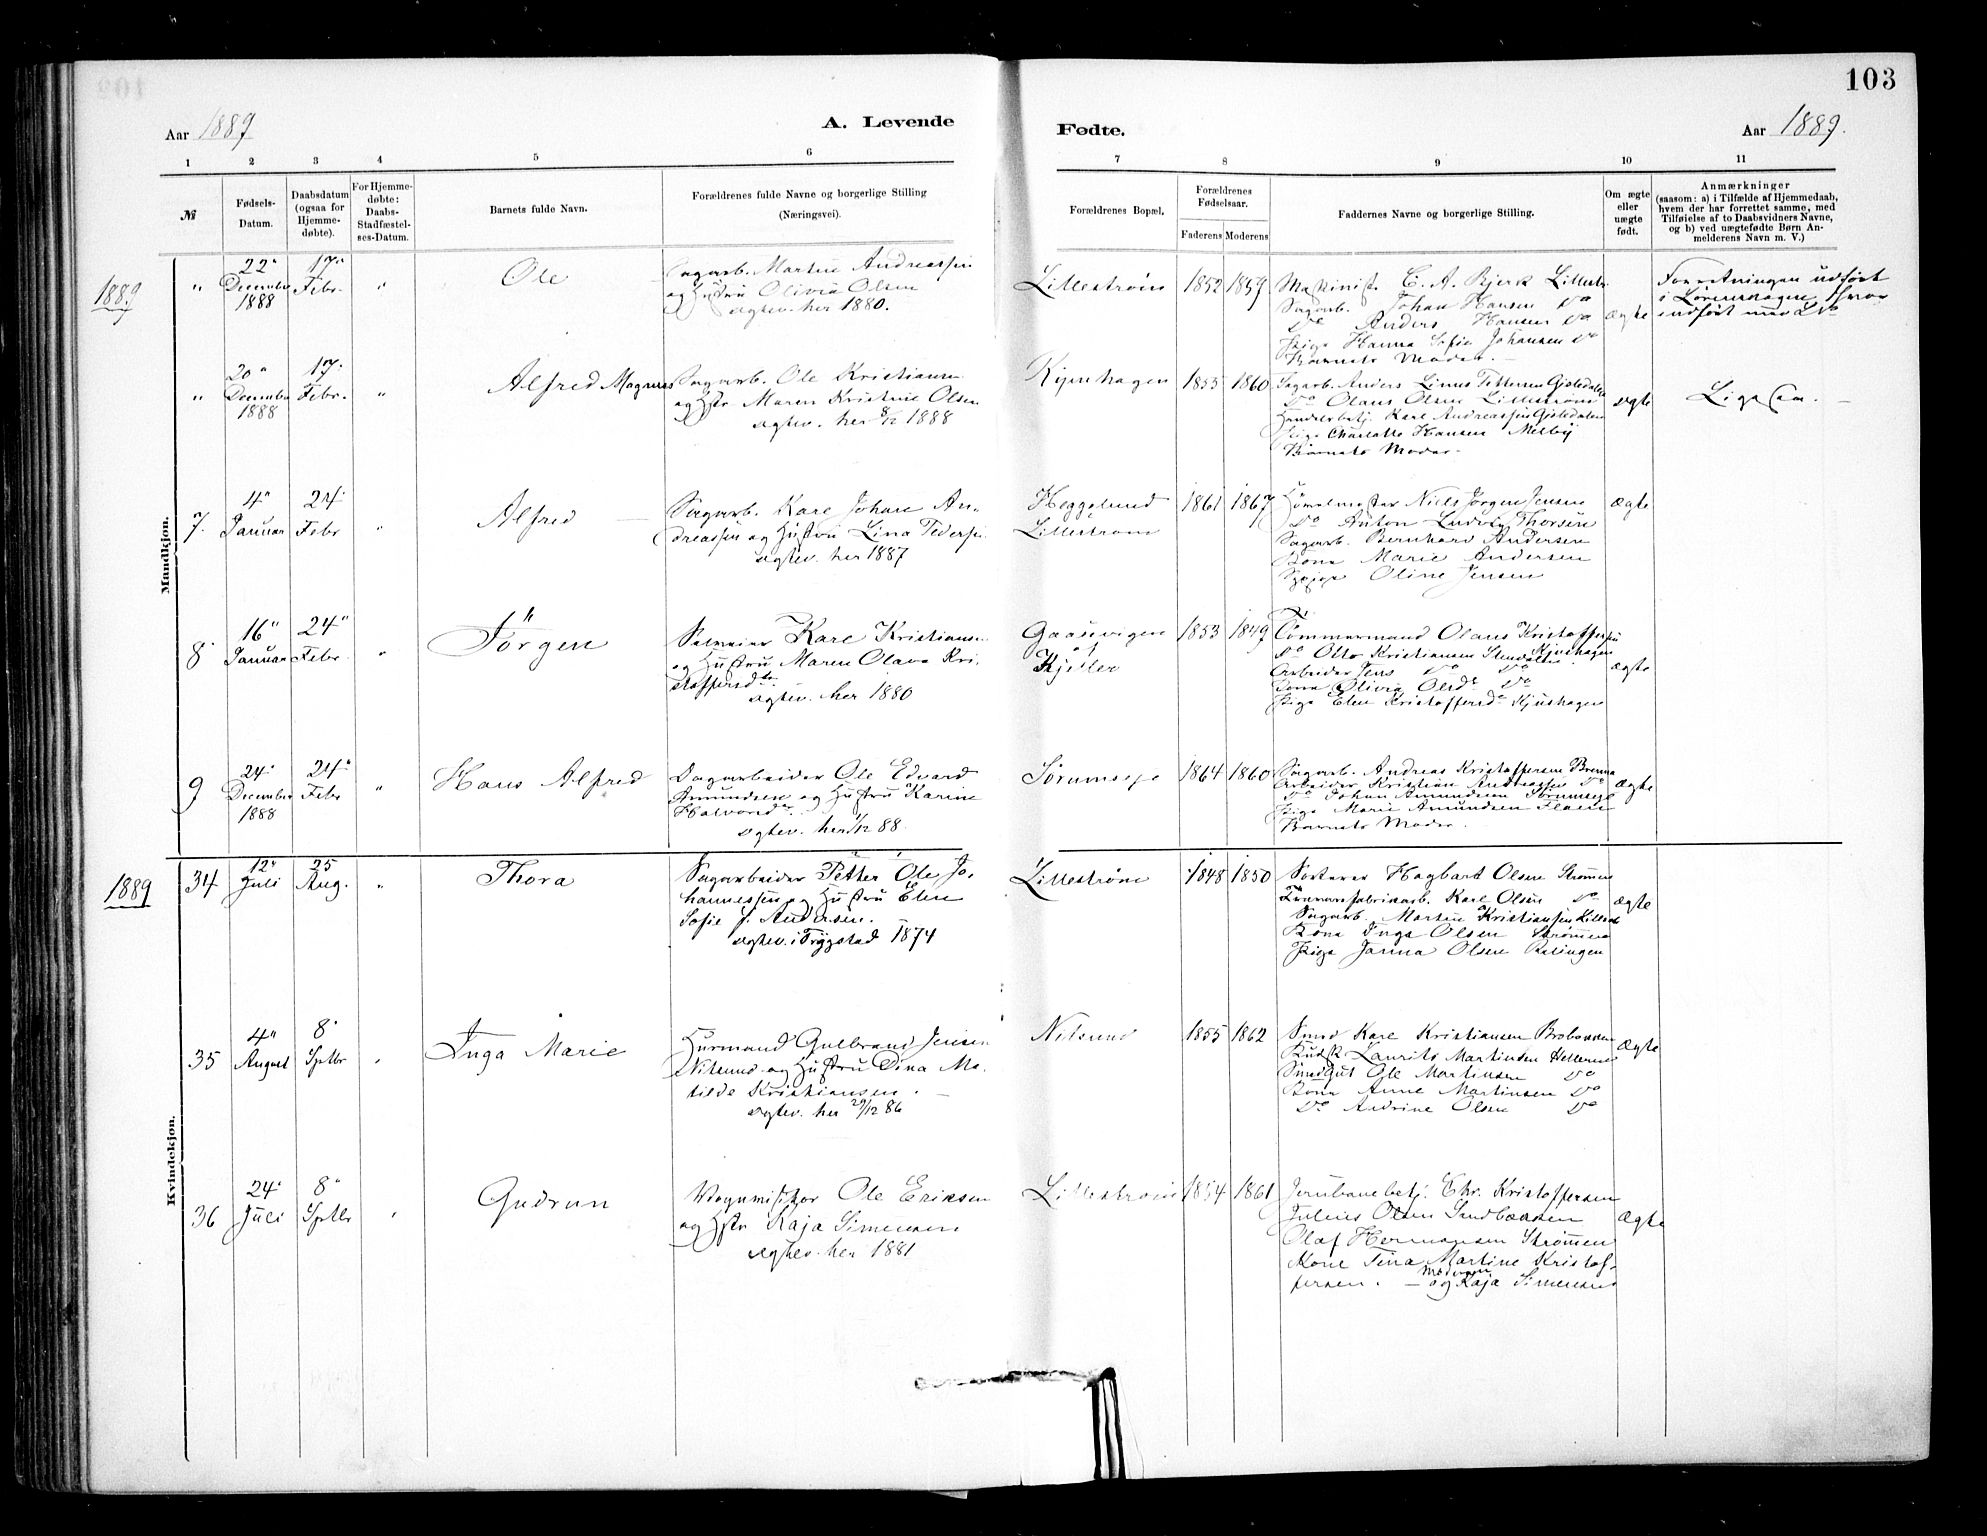 103
Aar 1889
A. Levende
Fødte.
Aar 1889.
1 2 3 4 5 6 7 8 9 10 11
№
Fødsels-
Datum.
Daabsdatum
(ogsaa for
Hjemme-
døbte).
For Hjemme-
døbte:
Daabs-
Stadfæstel-
ses-Datum.
Barnets fulde Navn.
Forældrenes fulde Navne og borgerlige Stilling
(Næringsvei).
Forældrenes Bopæl.
Forældrenes
Fødselsaar.
Faderens Moderens
Faddernes Navne og borgerlige Stilling.
Om ægte
eller
uægte
født.
Anmærkninger
(saasom: a) i Tilfælde af Hjemmedaab,
hvem der har forrettet samme, med
Tilføielse af to Daabsvidners Navne,
og b) ved uægtefødte Børn An-
melderens Navn m. V.)
Mandkjøn.
1889
" 22" December 1888
17" Febr.
"
Ole
Sagarb. Martin Andreassen
og Hustru Olivia Olsen
ægtev. her 1880.
Lillestrøm
1852 1859
Maskinist. C. A. Bjerk Lillestr.
Sagarb. Johan Hansen Do
Do Anders Hansen Do
Pige Hanna Sofie Johansen Do
Barnets Moder.
Ægte
Forretningen udført
i
indført
" 20" December 1888
17. Febr.
"
Alfred Magnus
Sagarb. Ole Kristiansen
og Hstr Maren Kristine Olsen
ægtev. her 8/12 1888
1855 1860
Sagarb. Anders Linus Pettersen Gjeledalen
Do Olaus Olsen Lillestrøm
Handelsbetj. Karl Andreassen Gjeledalen
Pige Charlotte Hansen Melby
Barnets Moder.
ægte
Ligesaa.
7. 4" Januar
24. Febr
"
Alfred
Sagarb. Karl Johan An-
dreassen og Hustru Lina Pedersen
ægtev. her 1887
Heggelund
Lillestrøm
1861 1867
Niels Jørgen Jensen
Do Anton Ludvig Thorsen
Sagarb. Bernhard Andersen
Kone Marie Andersen
Pige Oline Jensen
Ægte
8 16" Januar
24" Febr.
"
Jörgen
Selveier Karl Kristiansen
og Hustru Maren Olava Kri-
stoffersdtr.
ægtev. her 1880
Gaasevigen
af
Kjeller
1853 1849
Tømmermand Olaus Kristoffersen
Kjushagen
Do Otto Kristiansen
Arbeider Jens Do Do
Kone Olivia Olsdtr Do
Pige Elen Kristoffersdr Kjushagen
Ægte
9 24. December 1888
24" Febr
"
Hans Alfred
Sagarbeider Ole Edvard
Amundsen og Hustru Karine
Halvorsdtr.
ægtev. her 1/12 88.
1864 1860
Sagarb. Andreas Kristoffersen Brenna
Arbeider Kristian Andreassen Do
Do Johan Amundsen
Pige Marie Amundsen Flaen
Barnets Moder.
Ægte
Kvindekjøn.
1889
34 12" Juli
25 Aug.
"
Thora
Sagarbeider Petter Ole Jo-
hannessen og Hustru Elen
Sofie f. Andersen.
ægtev. i Trygstad 1874
Lillestrøm
1848 1850
Sorterer Hagbart Olsen Strømmen
Karl Olsen Do
Sagarb. Martin Kristiansen Lillestr
Kone Inga Olsen Strømmen
Pige Janna Olsen Rælingen
Ægte
35 4" August
8" Sptbr
"
Inga Marie
Husmand Gulbrand Jensen
Nitsund og Hustru Dina Ma-
tilde Kristiansen.
ægtev. her 29/12 86
Nitsund
1855 1862
Smed Karl Kristiansen
Kudsk Laurits Martinsen
Smedgut Ole Martinsen Do
Kone Anne Martinsen Do
Do Andrine Olsen Do
Ægte
36 24. Juli
8" Sptbr
"
Gudrun
Vognvisitør Ole Eriksen
og Hstr Kaja Simensen
ægtev. her 1881
Lillestrøm
1854 1861
Jernbanebetj. Chr. Kristoffersen
Julius Olsen Sandbækken
Olaf Hermansen Strømmen
Kone Tina Martine Kristof-
fersen. — Moderen
og Kaja Simensen
Ægte